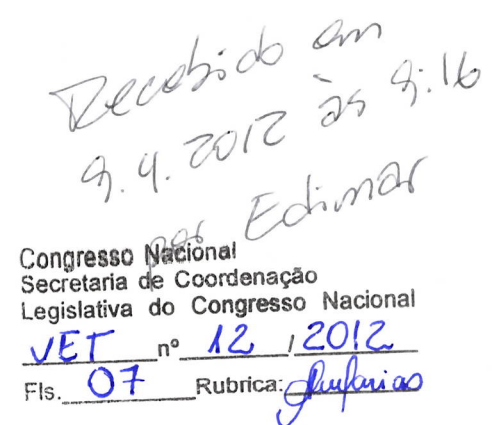 Recebido em
9.4.2012 às 9:16
por Edimar
Congresso Nacional
Secretaria de Coordenação
Legislativa do Congresso Nacional
VET nº 12 / 2012
Fls. 07 Rubrica: